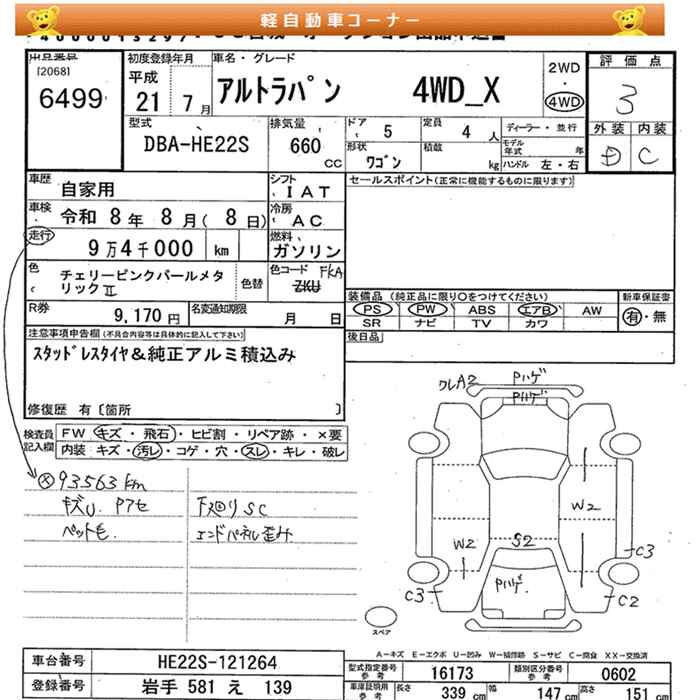 軽自動車コーナー
出品番号 初度登録年月 車名・グレード 評価点
[2068] 平成 アルトラパン 4WD_X 2WD
6499 21年 7月 ・ 4WD 3
型式 排気量 ドア 5 定員 4人 ディーラー・並行 外装 内装
DBA-HE22S 660cc 形状 ワゴン 積載 kg モデル年式 年 D C
ハンドル 左・右
車歴 自家用 シフト IAT セールスポイント(正常に機能するものに限ります)
車検 令和 8年 8月( 8日) 冷房 AC
走行 9万4千000 km 燃料 ガソリン
色 チェリーピンクパールメタリックⅡ 色替 色コード ZKU FKA
R券 9,170円 名変通知期限 月 日
装備品(純正品に限り○をつけてください) 新車保証書
PS PW ABS エアB AW 有・無
SR ナビ TV カワ
後日品
注意事項申告欄(不具合内容等は具体的に記入して下さい)
スタッドレスタイヤ&純正アルミ積込み
修復歴 有〔箇所 〕
検査員記入欄 FW キズ・飛石・ヒビ割・リペア跡・×要
内装 キズ・汚レ・コゲ・穴・スレ・キレ・破レ
93563km
キズU. Pアセ 下廻りSC
ペット毛. エンドパネル歪み
クレA2 Pハゲ
Pハゲ
W2
W2 S2
C3
Pハゲ.
C3 C2
スペア
A-キズ E-エクボ U-凹み W-補修跡 S-サビ C-腐食 XX-交換済
車台番号 HE22S-121264 型式指定番号 参考 16173 類別区分番号 参考 0602
登録番号 岩手 581 え 139 車庫証明用 参考 長さ 339cm 幅 147cm 高さ 151cm